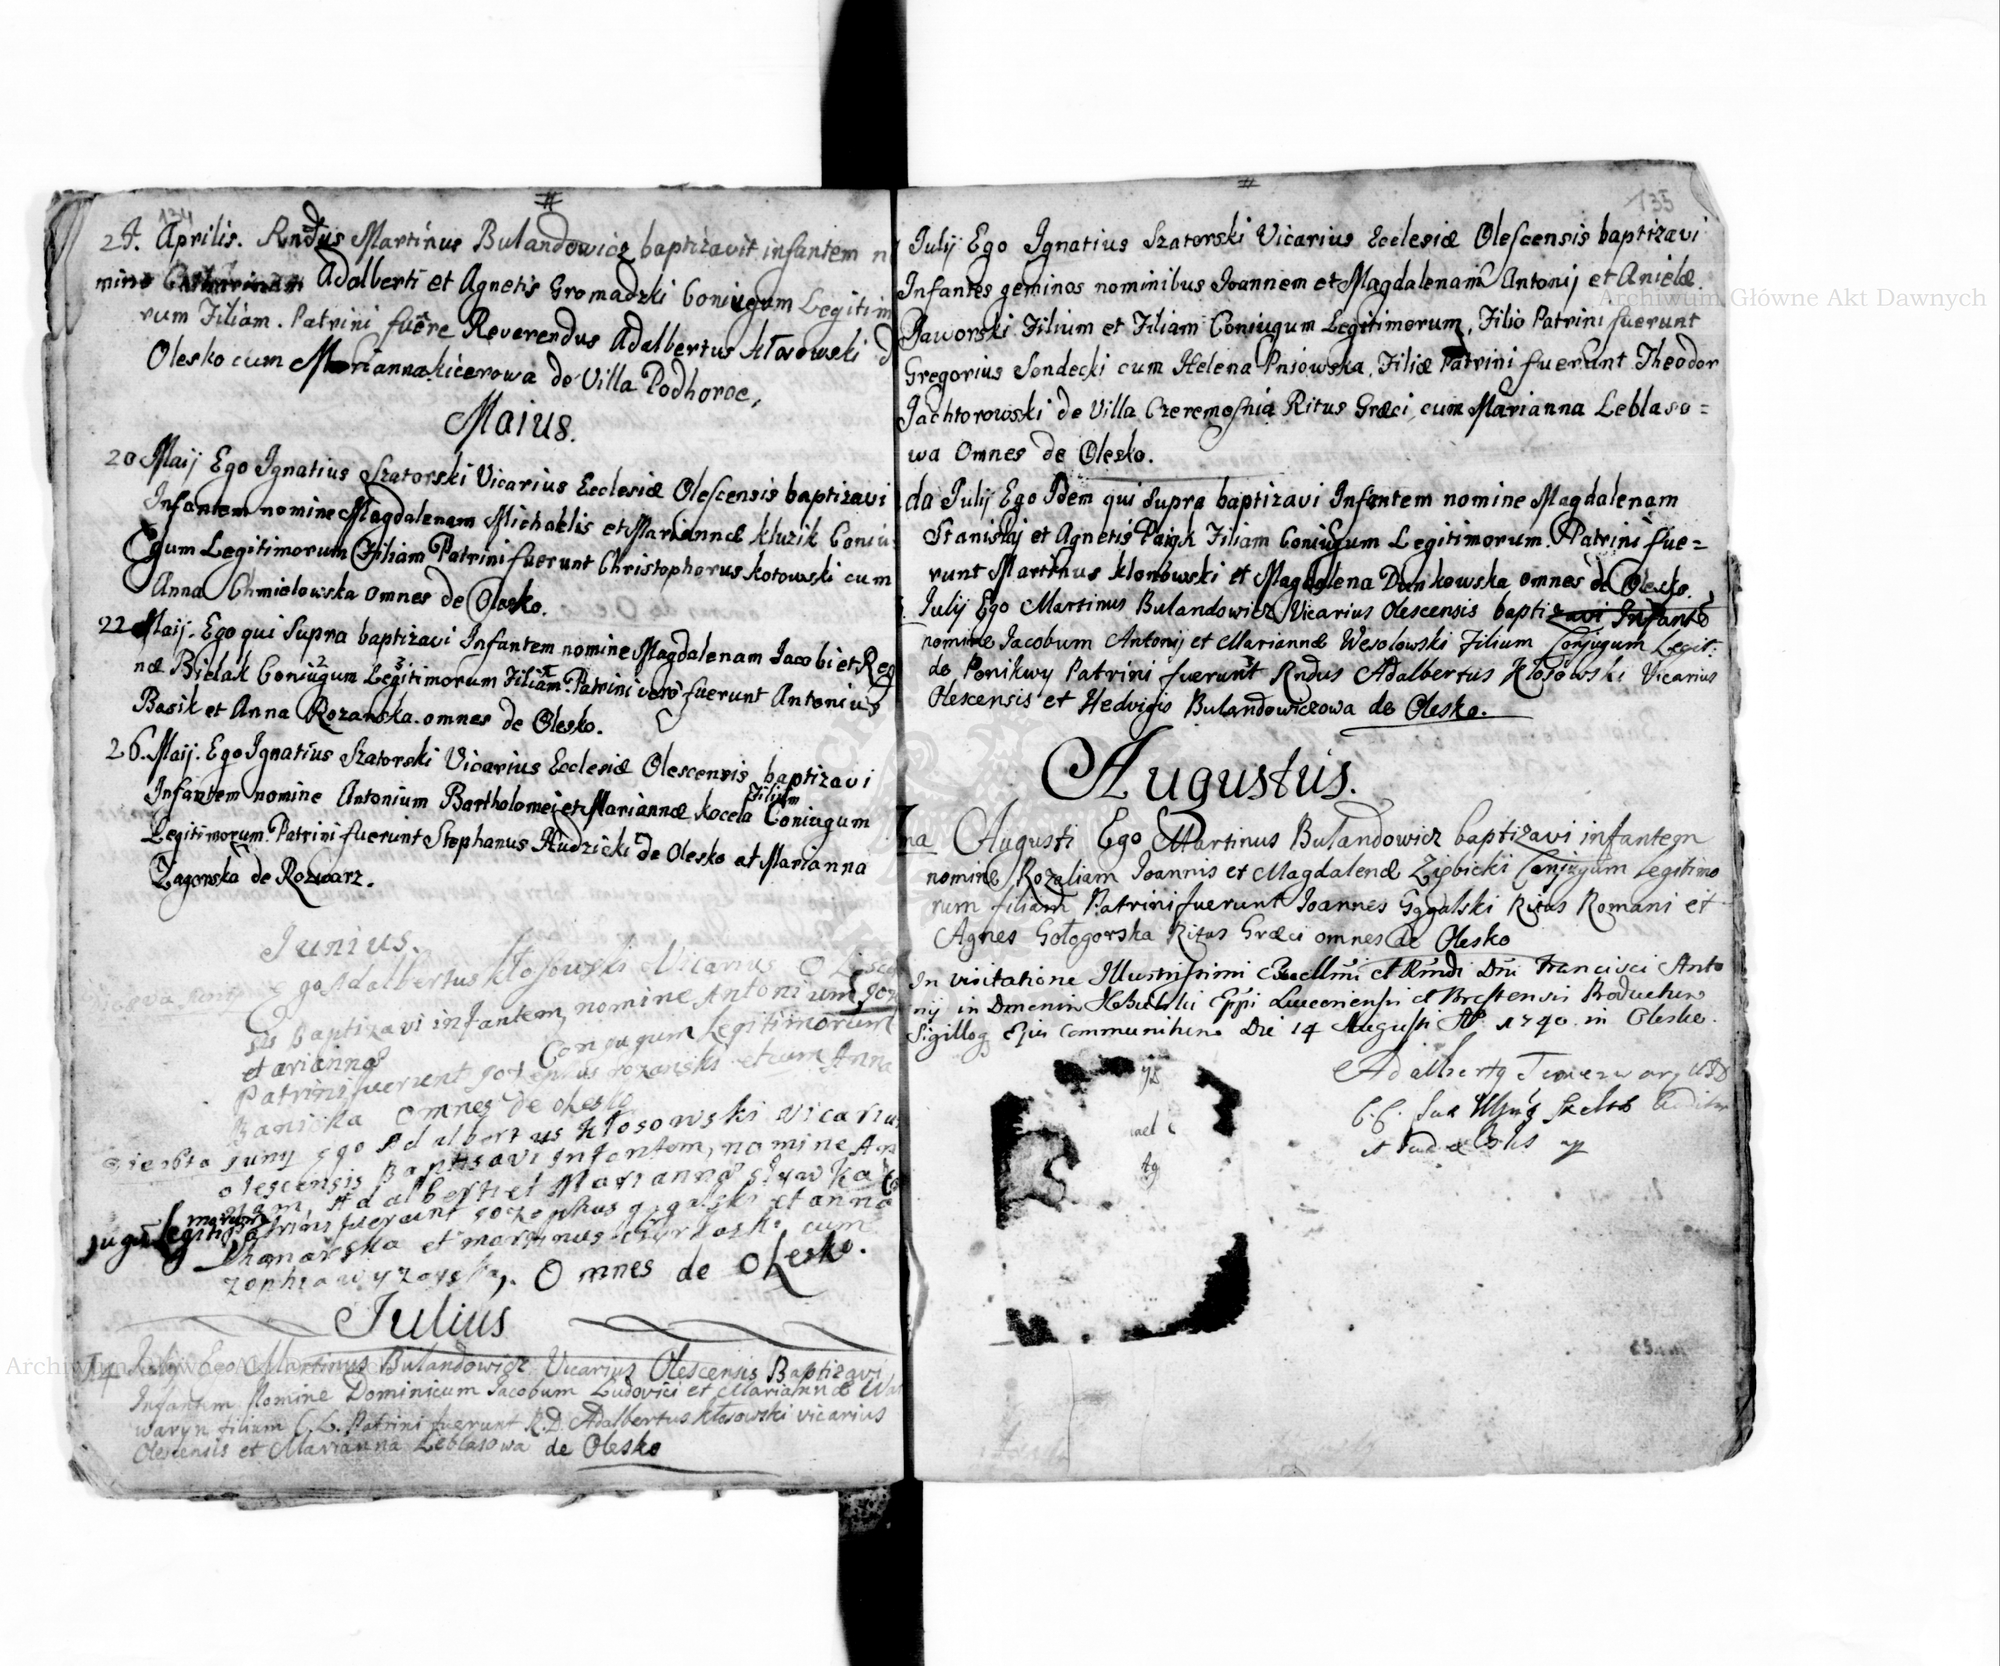 134
24. Aprilis. Rndus Martinus Bulandowicz baptizavit infantem n
mine Adalberti et Agnetis Gromadzki Coniugum Legitim
rum Filiam. Patrini fuere Reverendus Adalbertus Kłosowski d
Olesko cum Marianna Kicerowa de Villa Podhorce,
Maius.
20 Maij Ego Ignatius Szatorski Vicarius Ecclesiæ Olescensis baptizavi
Infantem nomine Magdalenam Michaelis et Mariannæ Kluzik Coniu
gum Legitimorum Filiam Patrini fuerunt Christophorus Kotowski cum
Anna Chmielowska omnes de Olesko.
22 Maij. Ego qui Supra baptizavi Infantem nomine Magdalenam Iacobi et Reg
næ Bielak Coniugum Legitimorum Filiam. Patrini vero fuerunt Antonius
Basik et Anna Rozanska omnes de Olesko.
26. Maij. Ego Ignatius Szatorski Vicarius Ecclesiæ Olescensis baptizavi
Infantem nomine Antonium Bartholomei et Mariannæ Kocela Filium Coniugum
Legitimorum Patrini fuerunt Stephanus Hudzicki de Olesko et Marianna
Zagorska de Rozwarz.
Iunius.
Ego Adalbertus Kłosowski Vicarius Olescen
sis Baptizavi infantem, nomine Antonium
et arianna Conyugum Legitimorum
Patrini fuerunt et cum Anna
Banicka omnes de olesko
Juny ego Adalbertus Kłosowski Vicarius
olescensis Baptisavi infantem, nomine
Adalberti et Marianna
Legiti morum Patrini fuerunt et anna
et martinus cum
omnes de olesko.
Iulius
14 Julij Ego Martinus Bulandowicz Vicarius Olescensis Baptizavi
Infantem Nomine Dominicum Iacobum Ludovici et Mariannæ
waryn filium C. L. Patrini fuerunt R. D. Adalbertus Kłosowski vicarius
Olescensis et Marianna Leblasowa de Olesko
135
Julij Ego Ignatius Szatorski Vicarius Ecclesiæ Olescensis baptizavi
Infantes geminos nominibus Ioannem et Magdalenam Antonij et Anielæ
Jaworski Filium et Filiam Coniugum Legitimorum, Filio Patrini fuerunt
Gregorius Sendecki cum Helena Pniowska, Filiæ Patrini fuerunt Theodor
Jachtorowski de Villa Czeremosnia Ritus Græci, cum Marianna Leblaso=
wa Omnes de Olesko.
da Julij Ego Idem qui Supra baptizavi Infantem nomine Magdalenam
Stanislaj et Agnetis Paigk Filiam Coniugum Legitimorum. Patrini fue=
runt Martinus Klonowski et Magdalena Dunkowska omnes de Olesko.
Julij Ego Martinus Bulandowicz Vicarius Olescensis baptizavi Infante
nomine Jacobum Antonij et Mariannæ Wesolowski Filium Conjugum Legit:
de Ponikwy Patrini fuerunt Rndus Adalbertus Kłosowski Vicarius
Olescensis et Hedvigis Bulandowiczowa de Olesko.
Augustus.
ma Augusti Ego Martinus Bulandowicz baptizavi infantem
nomine Rozaliam Ioannis et Magdalenæ Ziębicki Conjugum Legitimo
rum filiam Patrini fuerunt Ioannes Gągalski Ritus Romani et
Agnes Gołogorska Ritus Græci omnes de Olesko
In visitatione Illustrissimi et Rndi Dni Francisci Anto
nij in Dmenin Kobielski Eppi Luceoriensis et Brestensis Productum
Sigilloq Ejus Communitum Die 14 Augusti Ao 1740 in Olesko.
Archiwum Główne Akt Dawnych
Archiwum Główne Akt Dawnych